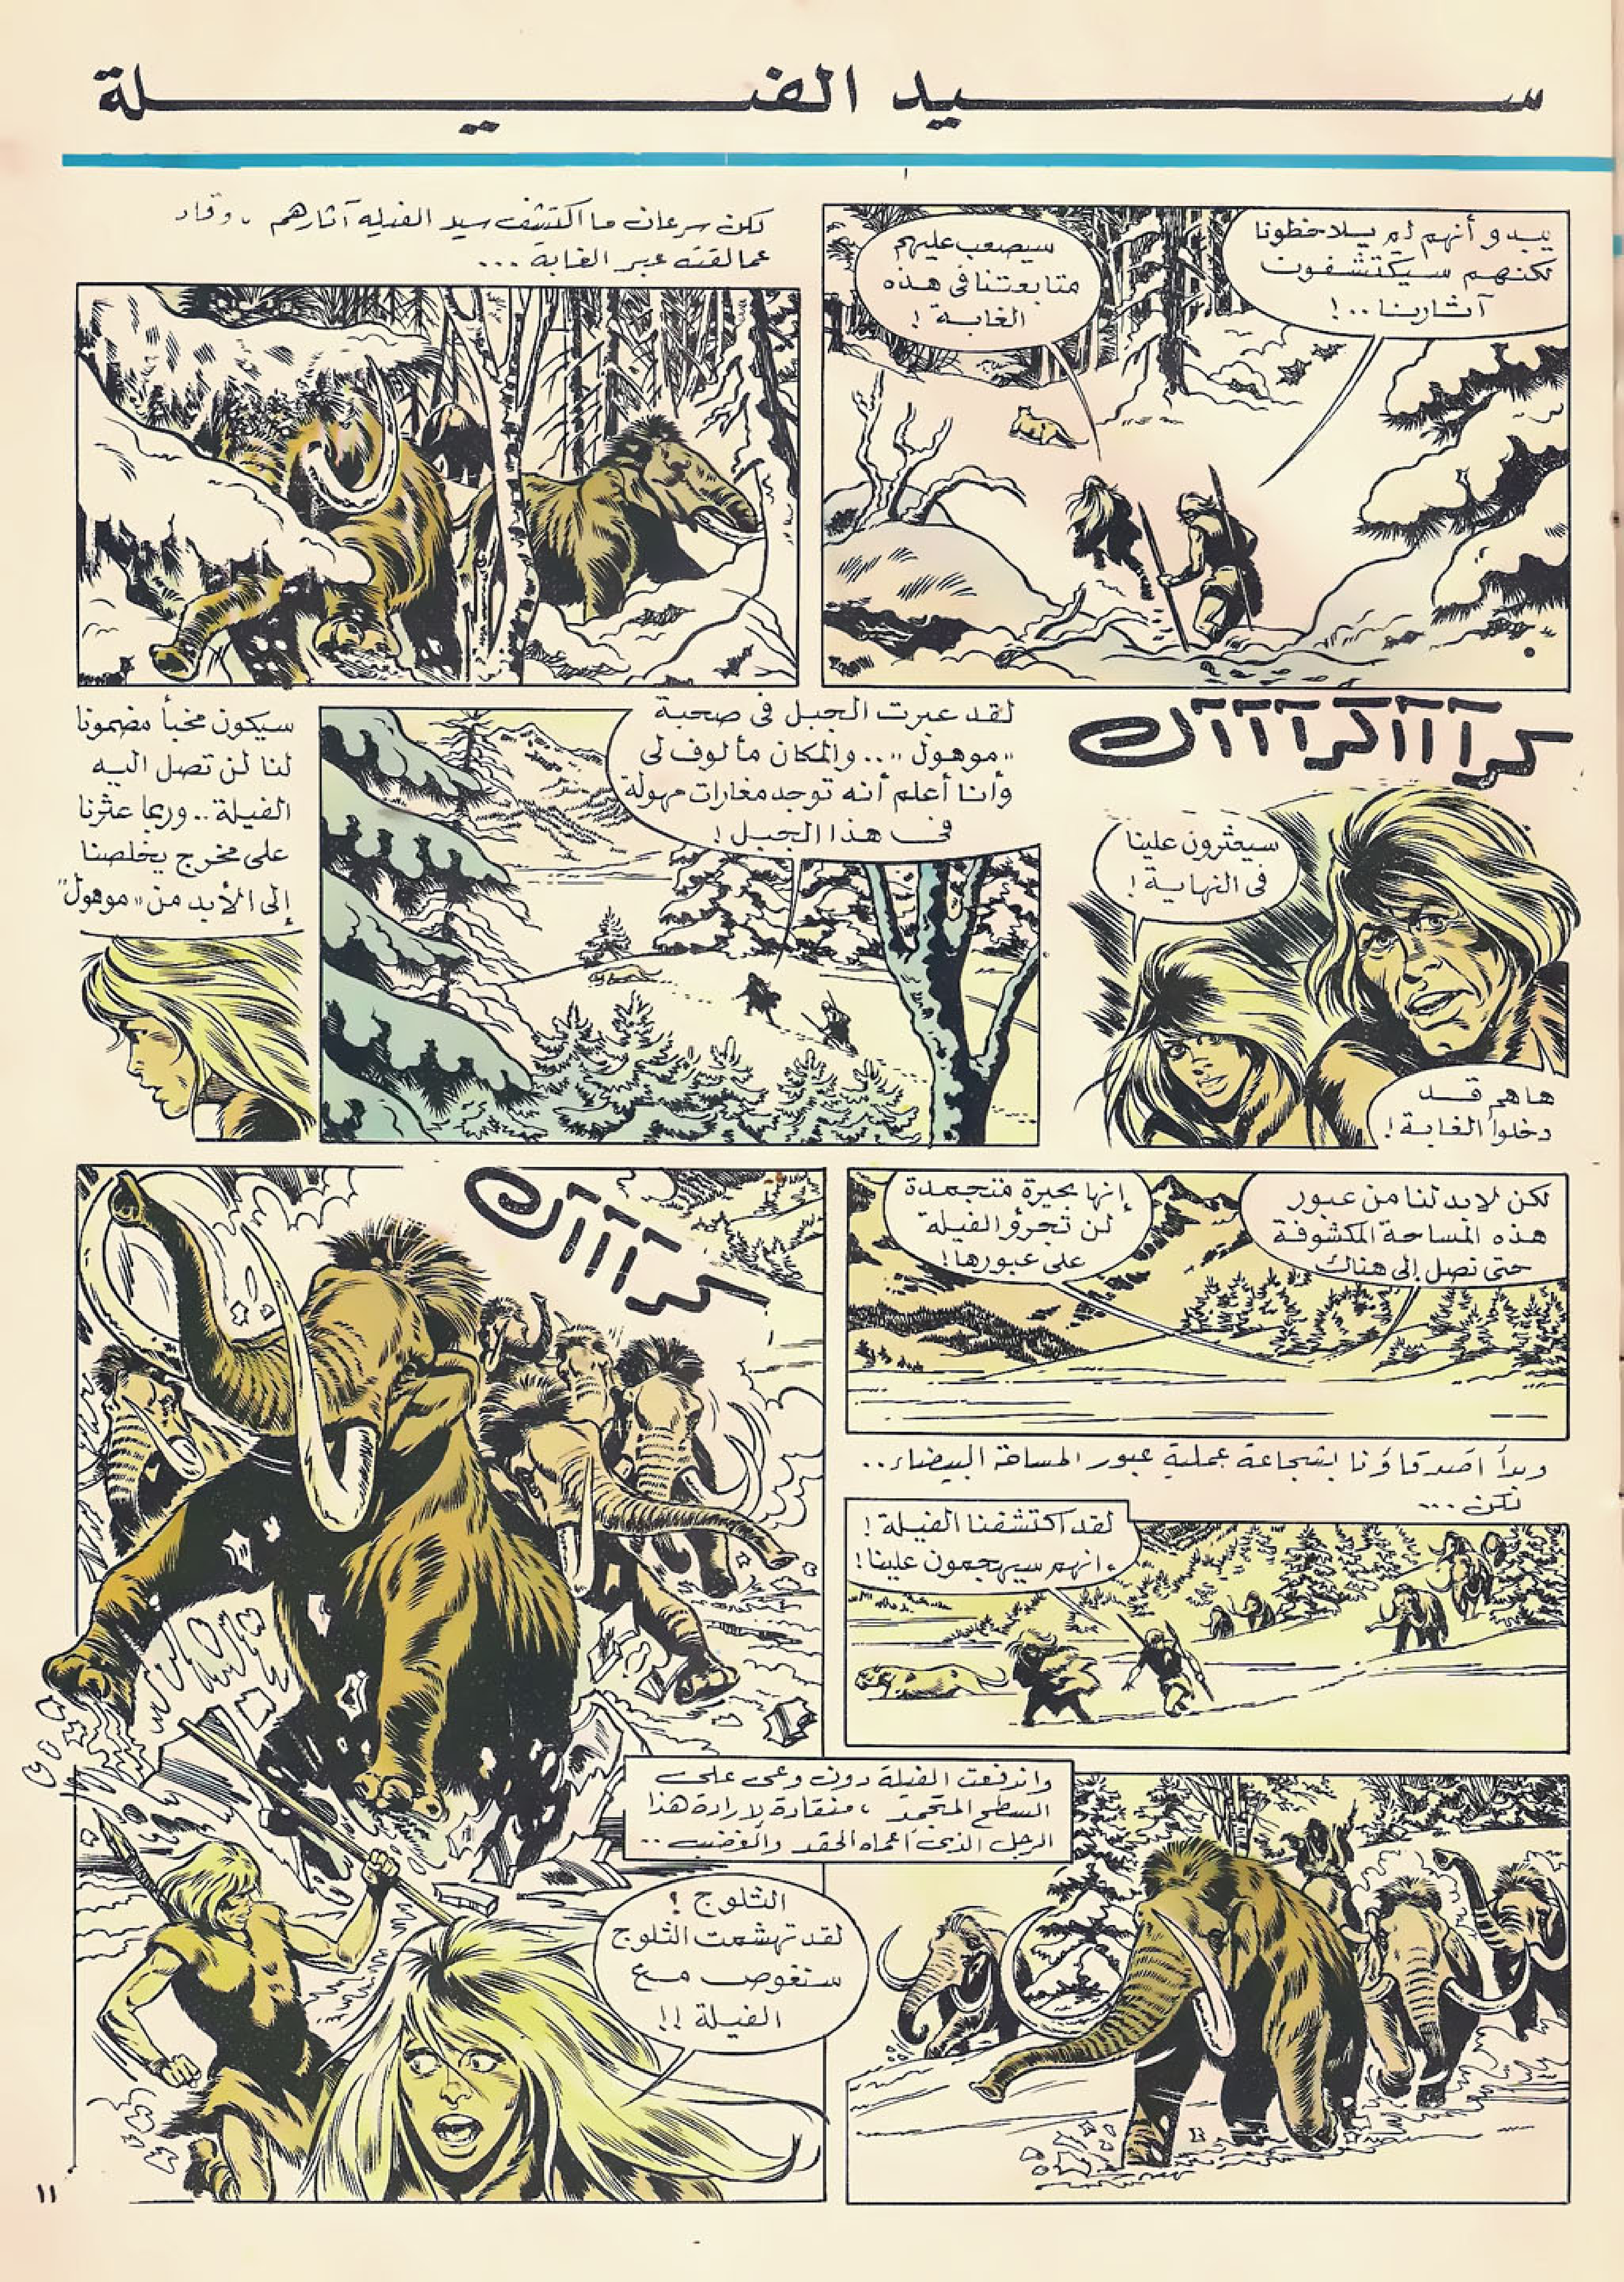 سيد الفيلة
يبدو أنهم لم يلاحظونا
لكنهم سيكتشفون
آثارنا ..!
سيصعب عليهم
متابعتنا في هذه
الغابة !
لكن سرعان ما اكتشف سيد الفيلة آثارهم ، وقاد
عمالقته عبر الغابة ...
كرآآآكرآآآك
سيعثرون علينا
في النهاية !
هاهم قد
دخلوا الغابة !
لقد عبرت الجبل في صحبة
"موهول" .. والمكان مألوف لى
وأنا أعلم أنه توجد مغارات مهولة
في هذا الجبل !
سيكون مخبأ مضمونا
لنا لن تصل اليه
الفيلة .. وربما عثرنا
على مخرج يخلصنا
إلى الأبد من "موهول"
لكن لابد لنا من عبور
هذه المساحة المكشوفة
حتى نصل إلى هناك
إنها بحيرة متجمدة
لن تجرؤ الفيلة
على عبورها !
وبدأ أصدقاؤنا بشجاعة عملية عبور المسافة البيضاء ..
لكن ...
لقد اكتشفنا الفيلة !
، انهم سيهجمون علينا !
واندفعت الفيلة دون وعى على
السطح المتجمد ، منقادة لإرادة هذا
الرجل الذى أعماه الحقد والغضب ..
كرآآآك
الثلوج ؟
لقد تهشمت الثلوج
سنغوص مع
الفيلة !!
١١